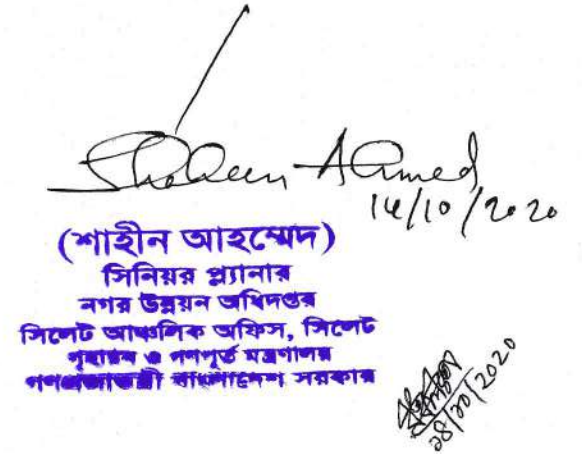 Shaheen Ahmed
14/10/2020
(শাহীন আহম্মেদ)
সিনিয়র প্ল্যানার
নগর উন্নয়ন অধিদপ্তর
সিলেট আঞ্চলিক অফিস, সিলেট
গৃহায়ন ও গণপূর্ত মন্ত্রণালয়
গণপ্রজাতন্ত্রী বাংলাদেশ সরকার
১৪/১০/2020